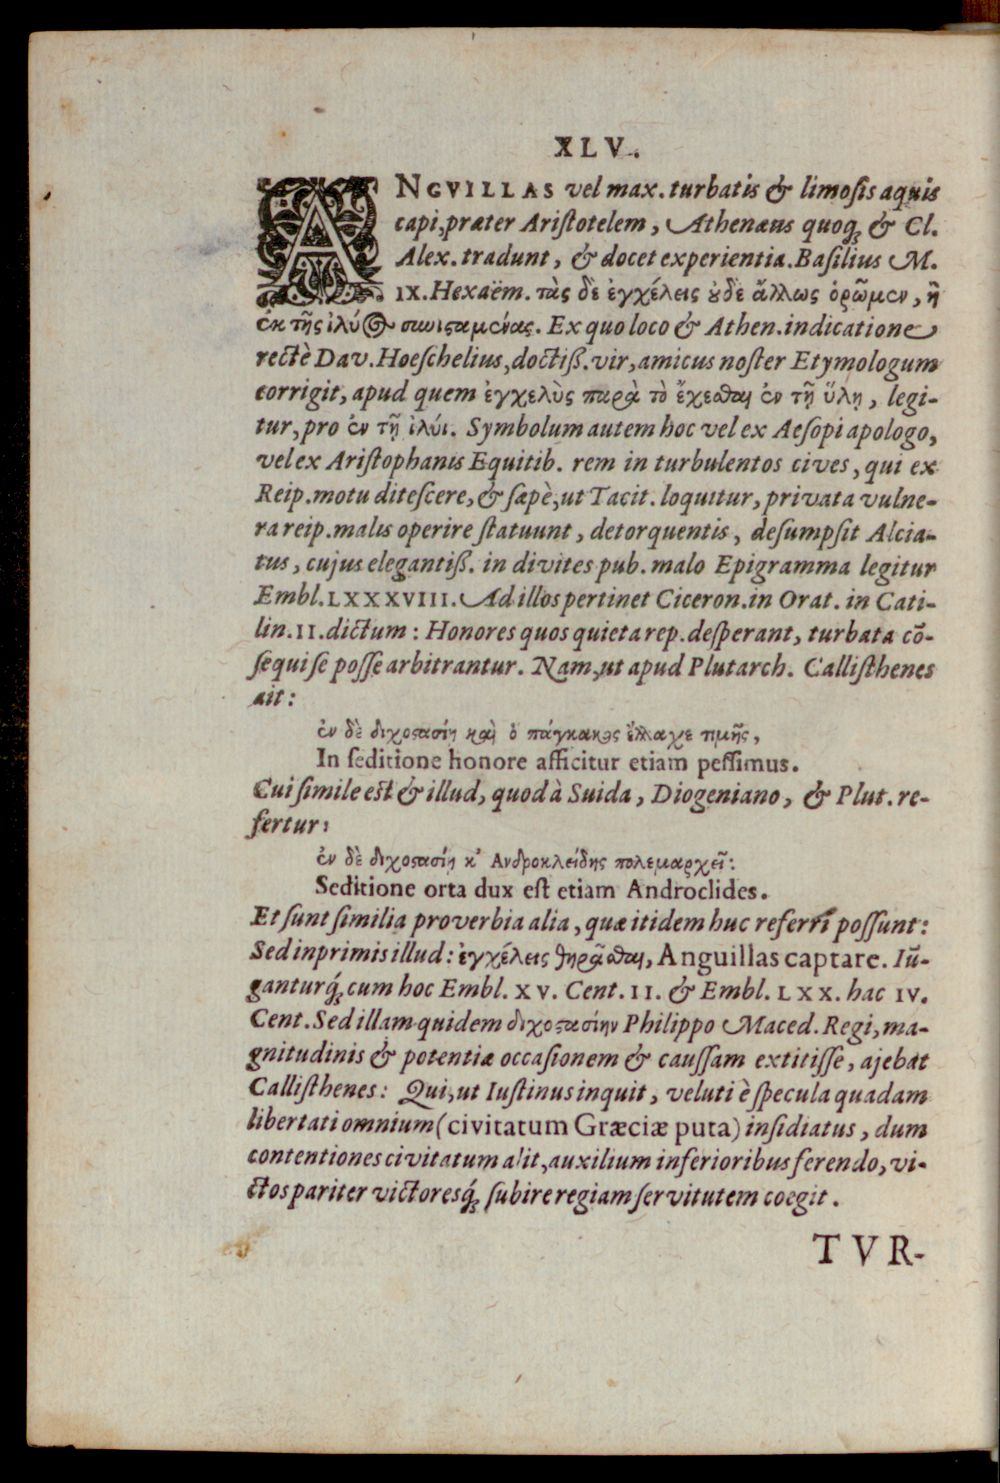 XLV.
ANGVILLAS vel max. turbatis & limosis aquis
capi, præter Aristotelem, Athenæus quoq; & Cl.
Alex. tradunt, & docet experientia. Basilius M.
IX. Hexaëm. τὰς δὲ ἐγχέλεις ȣδὲ ἄλλως ὁρῶμεν, ἢ
ἐκ τῆς ἰλύος συνισταμένας. Ex quo loco & Athen. indicatione
rectè Dav. Hoeschelius, doctiß. vir, amicus noster Etymologum
corrigit, apud quem ἐγχελὺς παρὰ τὸ ἔχεσθαι ἐν τῇ ὕλῃ, legi-
tur, pro ἐν τῇ ἰλύι. Symbolum autem hoc vel ex Aesopi apologo,
vel ex Aristophanis Equitib. rem in turbulentos cives, qui ex
Reip. motu ditescere, & sæpè, ut Tacit. loquitur, privata vulne-
ra reip. malis operire statuunt, detorquentis, desumpsit Alcia-
tus, cujus elegantiß. in divites pub. malo Epigramma legitur
Embl. LXXXVIII. Ad illos pertinet Ciceron. in Orat. in Cati-
lin. II. dictum: Honores quos quieta rep. desperant, turbata cō-
sequi se posse arbitrantur. Nam, ut apud Plutarch. Callisthenes
ait:
ἐν δὲ διχοστασίῃ καὶ ὁ πάγκακος ἔλλαχε τιμῆς,
In seditione honore afficitur etiam pessimus.
Cui simile est & illud, quod à Suida, Diogeniano, & Plut. re-
fertur:
ἐν δὲ διχοστασίῃ κ' Ανδροκλείδης πολεμαρχεῖ:
Seditione orta dux est etiam Androclides.
Et sunt similia proverbia alia, quæ itidem huc referri possunt:
Sed inprimis illud: ἐγχέλεις θηρᾶσθαι, Anguillas captare. Iū-
ganturq́; cum hoc Embl. XV. Cent. II. & Embl. LXX. hac IV.
Cent. Sed illam quidem διχοστασίην Philippo Maced. Regi, ma-
gnitudinis & potentiæ occasionem & caussam extitisse, ajebat
Callisthenes: Qui, ut Iustinus inquit, veluti è specula quadam
libertati omnium (civitatum Græciæ puta) insidiatus, dum
contentiones civitatum alit, auxilium inferioribus ferendo, vi-
ctos pariter victoresq́; subire regiam servitutem coegit.
TVR-